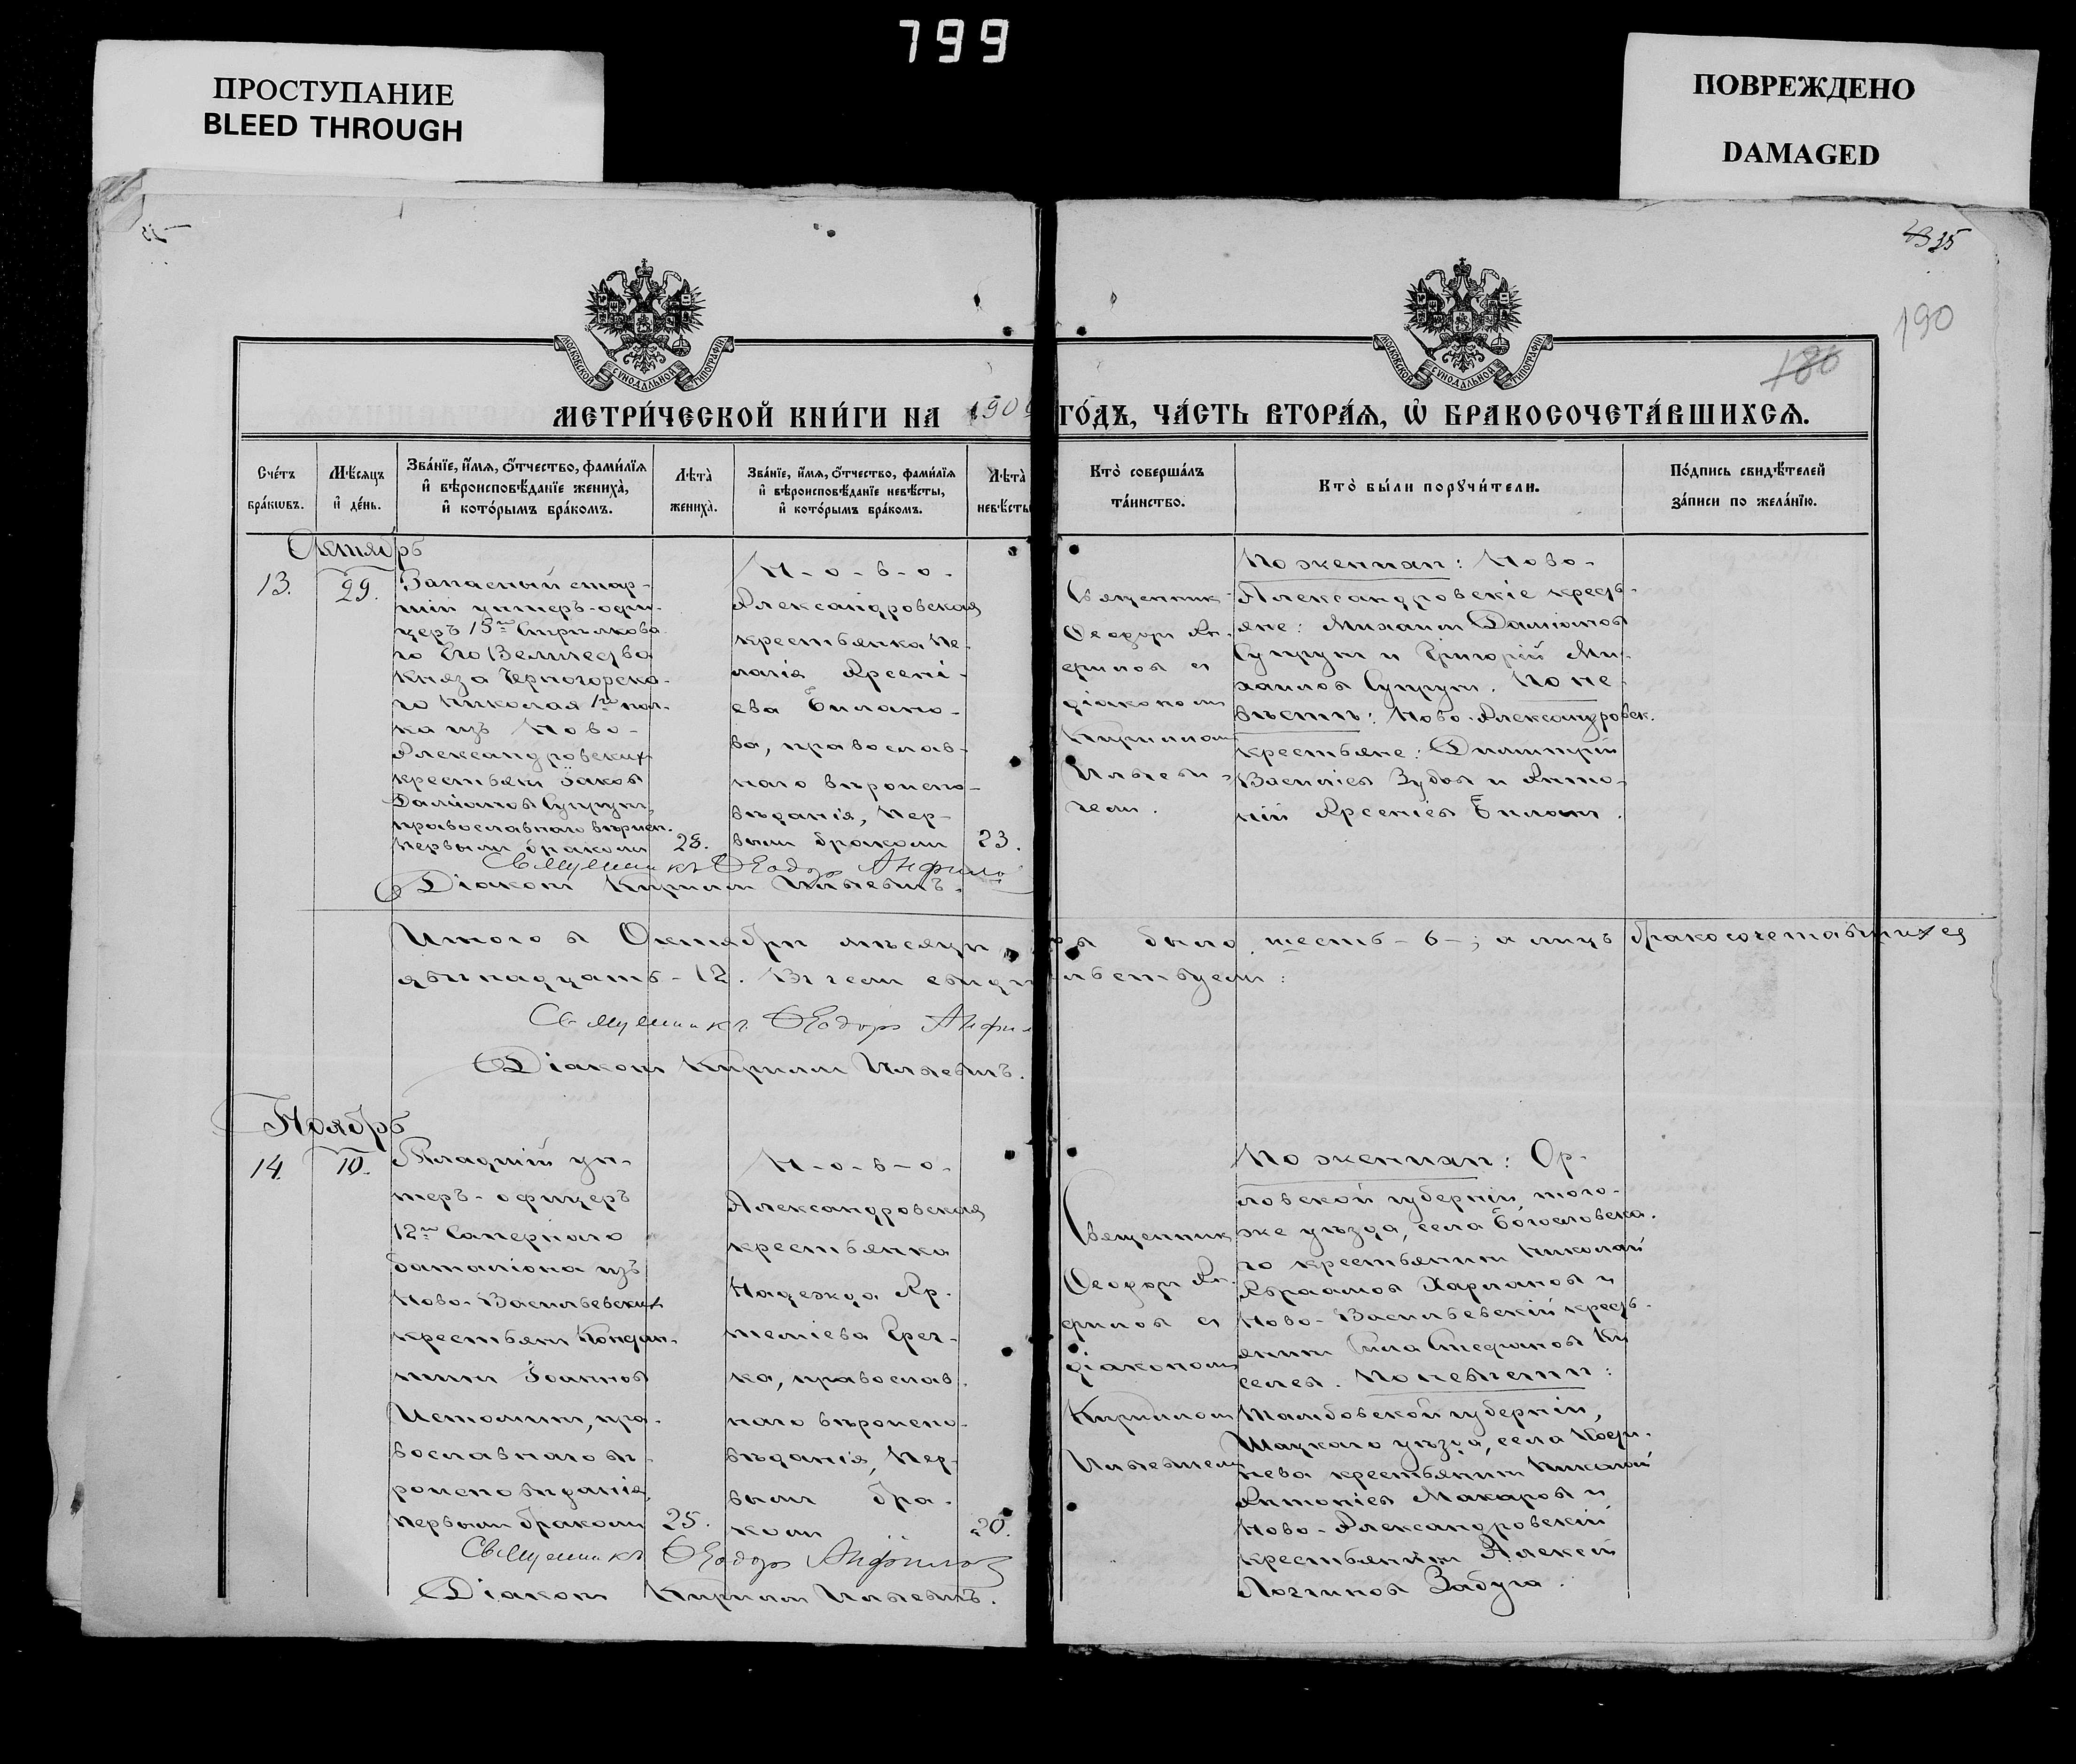 799
ПРОСТУПАНИЕ
BLEED THROUGH
ПОВРЕЖДЕНО
DAMAGED
35
190
186
МОСКОВСКОЙ СѴНОДАЛЬНОЙ ТИПОГРАФІИ
МОСКОВСКОЙ СѴНОДАЛЬНОЙ ТИПОГРАФІИ
МЕТРИ́ЧЕСКОЙ КНИ́ГИ НА 190
ГО́ДЪ, ЧА́СТЬ ВТОРА́Я, Ѡ҆ БРАКОСОЧЕТА́ВШИХСѦ.
Сче́тъ
бра́кѡвъ.
Мѣ́сѧцъ
и҆ де́нь.
Зва́нїе, и҆́мѧ, ѻ҆́тчество, фами́лїѧ
и҆ вѣроисповѣ́данїе жениха̀,
и҆ кото́рымъ бра́комъ.
Лѣ́та̀
жениха̀.
Зва́нїе, и҆́мѧ, ѻ҆́тчество, фами́лїѧ
и҆ вѣроисповѣ́данїе невѣ́сты,
и҆ кото́рымъ бра́комъ.
Лѣ́та̀
невѣ́сты
Кто̀ соверша́лъ
та́инство.
Кто̀ бы́ли порꙋчи́тели.
По́дпись свидѣ́телей
за́писи по жела́нїю.
Октябрь
13.
29.
Запасный стар-
шій унтеръ-офи-
церъ 15го Стрѣлково-
го Его Величества
Князя Черногорска-
го Николая 1го пол-
ка изъ Ново-
Александровскихъ
крестьянъ Іаковъ
Даміановъ Супрунъ,
православнаго вѣроисп.
первымъ бракомъ
28.
Н-о-в-о-
Александровская
крестьянка Пе-
лагія Арсені-
ева Билано-
ва, православ-
наго вѣроиспо-
вѣданія, пер-
вымъ бракомъ
23.
Священникъ
Ѳеодоръ Ан-
филовъ съ
діакономъ
Кирилломъ
Ильеви-
чемъ.
По женихѣ: Ново-
Александровскіе кресть-
яне: Михаилъ Даміановъ
Супрунъ и Григорій Ми-
хаиловъ Супрунъ. По не-
вѣстѣ: Ново-Александровск.
крестьяне: Димитрій
Василіевъ Зубовъ и Анто-
ній Арсеніевъ Билан.
Священникъ Ѳеодоръ Анфило
Діаконъ Кириллъ Ильевичъ.
Итого въ Октябрѣ мѣсяцѣ было шесть -6-; а лицъ бракосочетавшихся
двѣнадцать -12. Въ чемъ свидѣтельствуемъ:
Священникъ Ѳеодоръ Анфи
Діаконъ Кириллъ Ильевичъ.
Ноябрь
14.
10.
Младшій ун-
теръ-офицеръ
12го Сапернаго
баталіона изъ
Ново-Васильевскихъ
крестьянъ Кондра-
тій Іоанновъ
Истоминъ, пра-
вославнаго вѣ-
роисповѣданія,
первымъ бракомъ
25.
Н-о-в-о-
Александровская
крестьянка
Надежда Ар-
теміева Греч-
ка, православ-
наго вѣроиспо-
вѣданія, пер-
вымъ бра-
комъ
20.
Священникъ
Ѳеодоръ Ан-
филовъ съ
діакономъ
Кирилломъ
Ильевичемъ
По женихѣ: Ор-
ловской губерніи, того-
же уѣзда, села Богословска-
го крестьянинъ Николай
Авраамовъ Харлановъ и
Ново-Васильевскій кресть-
янинъ Сила Стефановъ Ки
селев. По невѣстѣ:
Тамбовской губерніи,
Шацкаго уѣзда, села
крестьянинъ Николай
Антоніевъ Макаровъ и
Ново-Александровскій
крестьянинъ Алексій
Логгиновъ Забуга.
Священникъ Ѳеодоръ Анфиловъ
Діаконъ Кириллъ Ильевичъ.